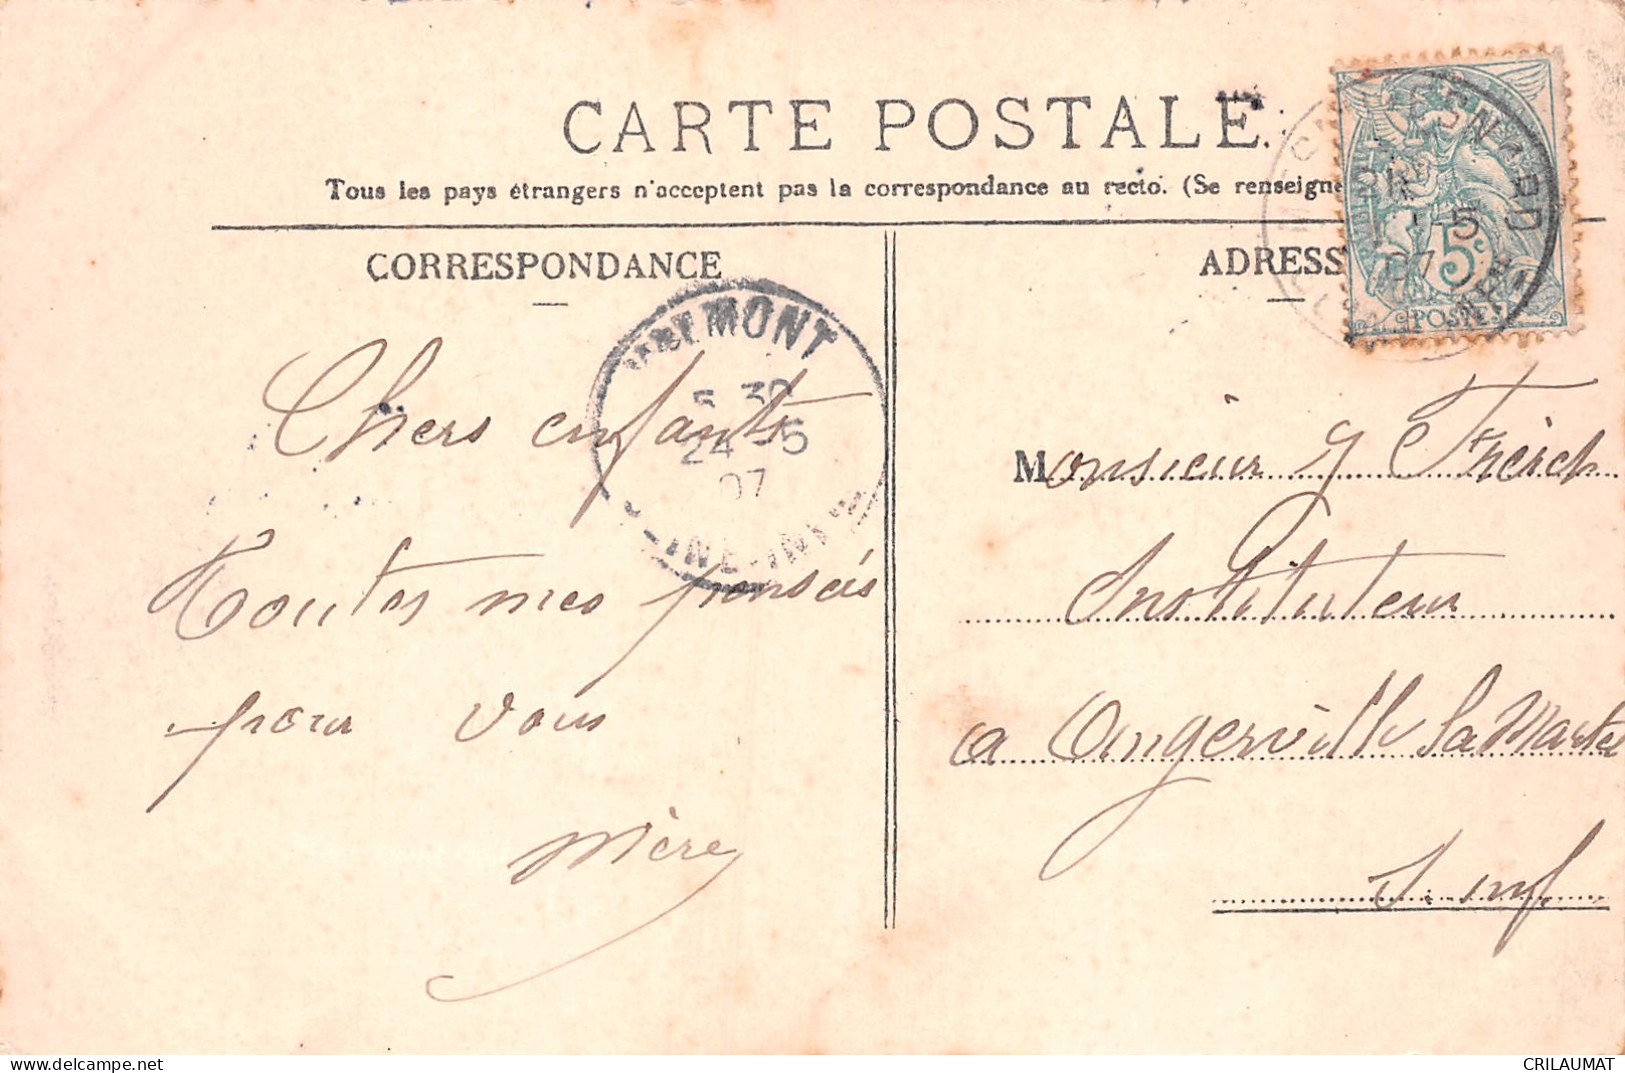 CARTE POSTALE.
Tous les pays étrangers n'acceptent pas la correspondance au recto. (Se renseigne
CORRESPONDANCE
ADRESS
5c
POSTES
MONT
5 30
24 -5
07
-5
07
Chers enfants
Toutes mes pensées
pour vous
Mère
Monsieur
Instituteur
a Angerville la Martel
S. inf
delcampe.net
CRILAUMAT